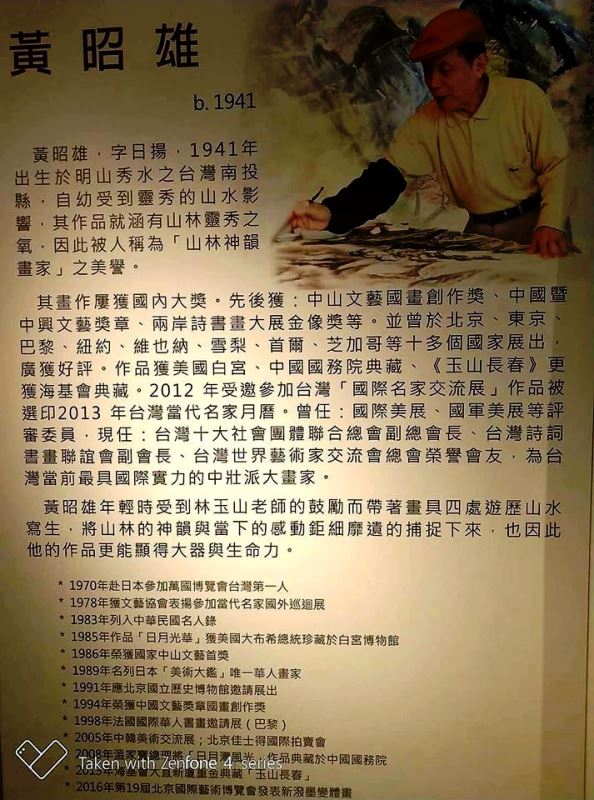 黃昭雄
b. 1941
黃昭雄，字日揚，1941年
出生於明山秀水之台灣南投
縣，自幼受到靈秀的山水影
響，其作品就涵有山林靈秀之
氣，因此被人稱為「山林神韻
畫家」之美譽。
其畫作屢獲國內大獎。先後獲：中山文藝國畫創作獎、中國暨
中興文藝獎章、兩岸詩書畫大展金像獎等。並曾於北京、東京、
巴黎、紐約、維也納、雪梨、首爾、芝加哥等十多個國家展出，
廣獲好評。作品獲美國白宮、中國國務院典藏、《玉山長春》更
獲海基會典藏。2012 年受邀參加台灣「國際名家交流展」作品被
選印2013 年台灣當代名家月曆。曾任：國際美展、國軍美展等評
審委員，現任：台灣十大社會團體聯合總會副總會長、台灣詩詞
書畫聯誼會副會長、台灣世界藝術家交流會總會榮譽會友，為台
灣當前最具國際實力的中壯派大畫家。
黃昭雄年輕時受到林玉山老師的鼓勵而帶著畫具四處遊歷山水
寫生，將山林的神韻與當下的感動鉅細靡遺的捕捉下來，也因此
他的作品更能顯得大器與生命力。
* 1970年赴日本參加萬國博覽會台灣第一人
* 1978年獲文藝協會表揚參加當代名家國外巡迴展
* 1983年列入中華民國名人錄
* 1985年作品「日月光華」獲美國大布希總統珍藏於白宮博物館
* 1986年榮獲國家中山文藝首獎
* 1989年名列日本「美術大鑑」唯一華人畫家
* 1991年應北京國立歷史博物館邀請展出
* 1994年榮獲中國文藝獎章國畫創作獎
* 1998年法國國際華人書畫邀請展（巴黎）
* 2005年中韓美術交流展；北京佳士得國際拍賣會
* 2008年溫家寶總理將「日月潭風光」作品典藏於中國國務院
* 2013年海基會大直新廈重金典藏「玉山長春」
* 2016年第19屆北京國際藝術博覽會發表新潑墨變體畫
Taken with Zenfone 4 series